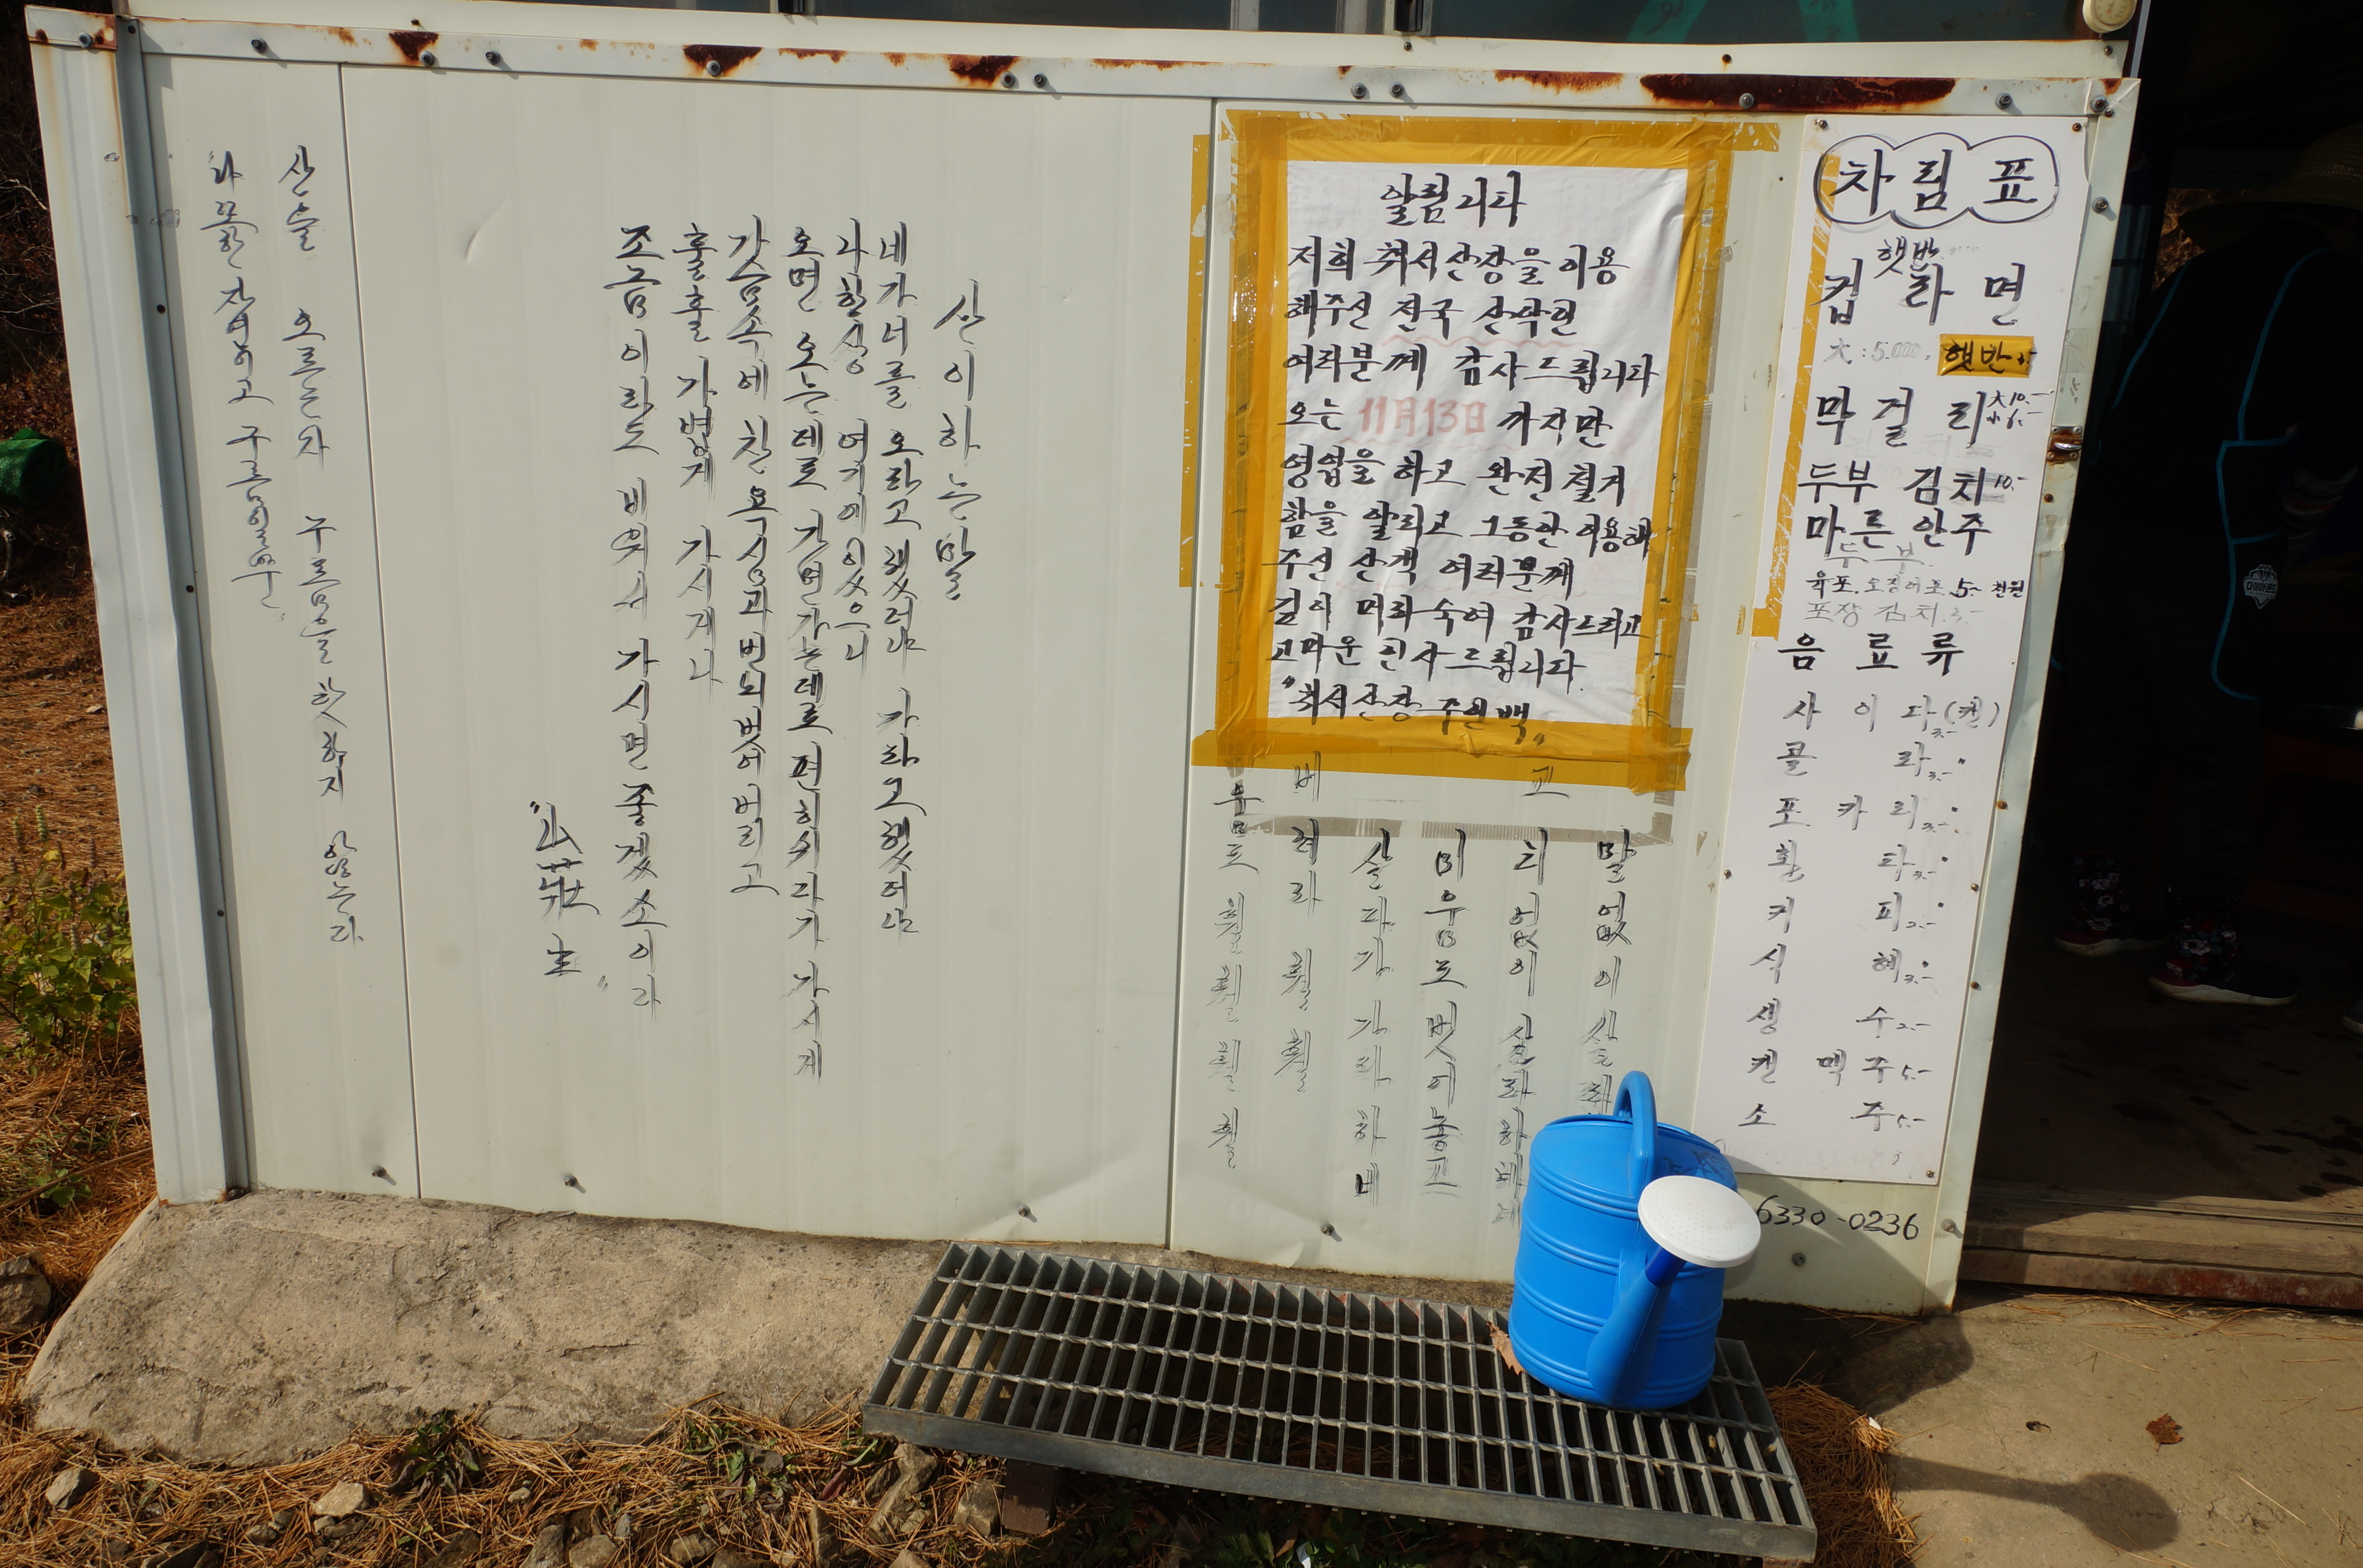 산을 오르는자 구름을 탓하지 않는다
산이 하는 말
네가 너를 오라고 했더냐 가라고 했더냐
나 항상 여기에 있으니
오면 오는데로 가면 가는데로 편히 쉬다가 가시게
가슴속에 찬 욕심과 번뇌 벗어 버리고
훌훌 가볍게 가시게나
조금이라도 비워서 가시면 좋겠소이다
"山莊主"
알림니다
저희 취서산장을 이용
해주신 전국 산악인
여러분께 감사드립니다
오는 11月13日 까지만
영업을 하고 완전철거
함을 알리고 그동안 이용해
주신 산객 여러분께
깊이 머리숙여 감사드리고
고마운 인사드립니다
"취서산장 주인백"
말없이 살라
티없이 살라하네
미움도 벗어놓고
살다가 가라하네
버려라 훨훨
움도 훨훨훨훨
차림표
햇반
컵라면
大:5.000. 햇반
막걸리 大10.- 小6.-
두부 김치 10.-
마른 안주
두부
육포.오징어포.5-천원
포장김치.
음료류
사이다(켄)
콜라
포카리
환타
커피
식혜
생수 2.-
켄맥주 5.-
소주 5.-
6330-0236